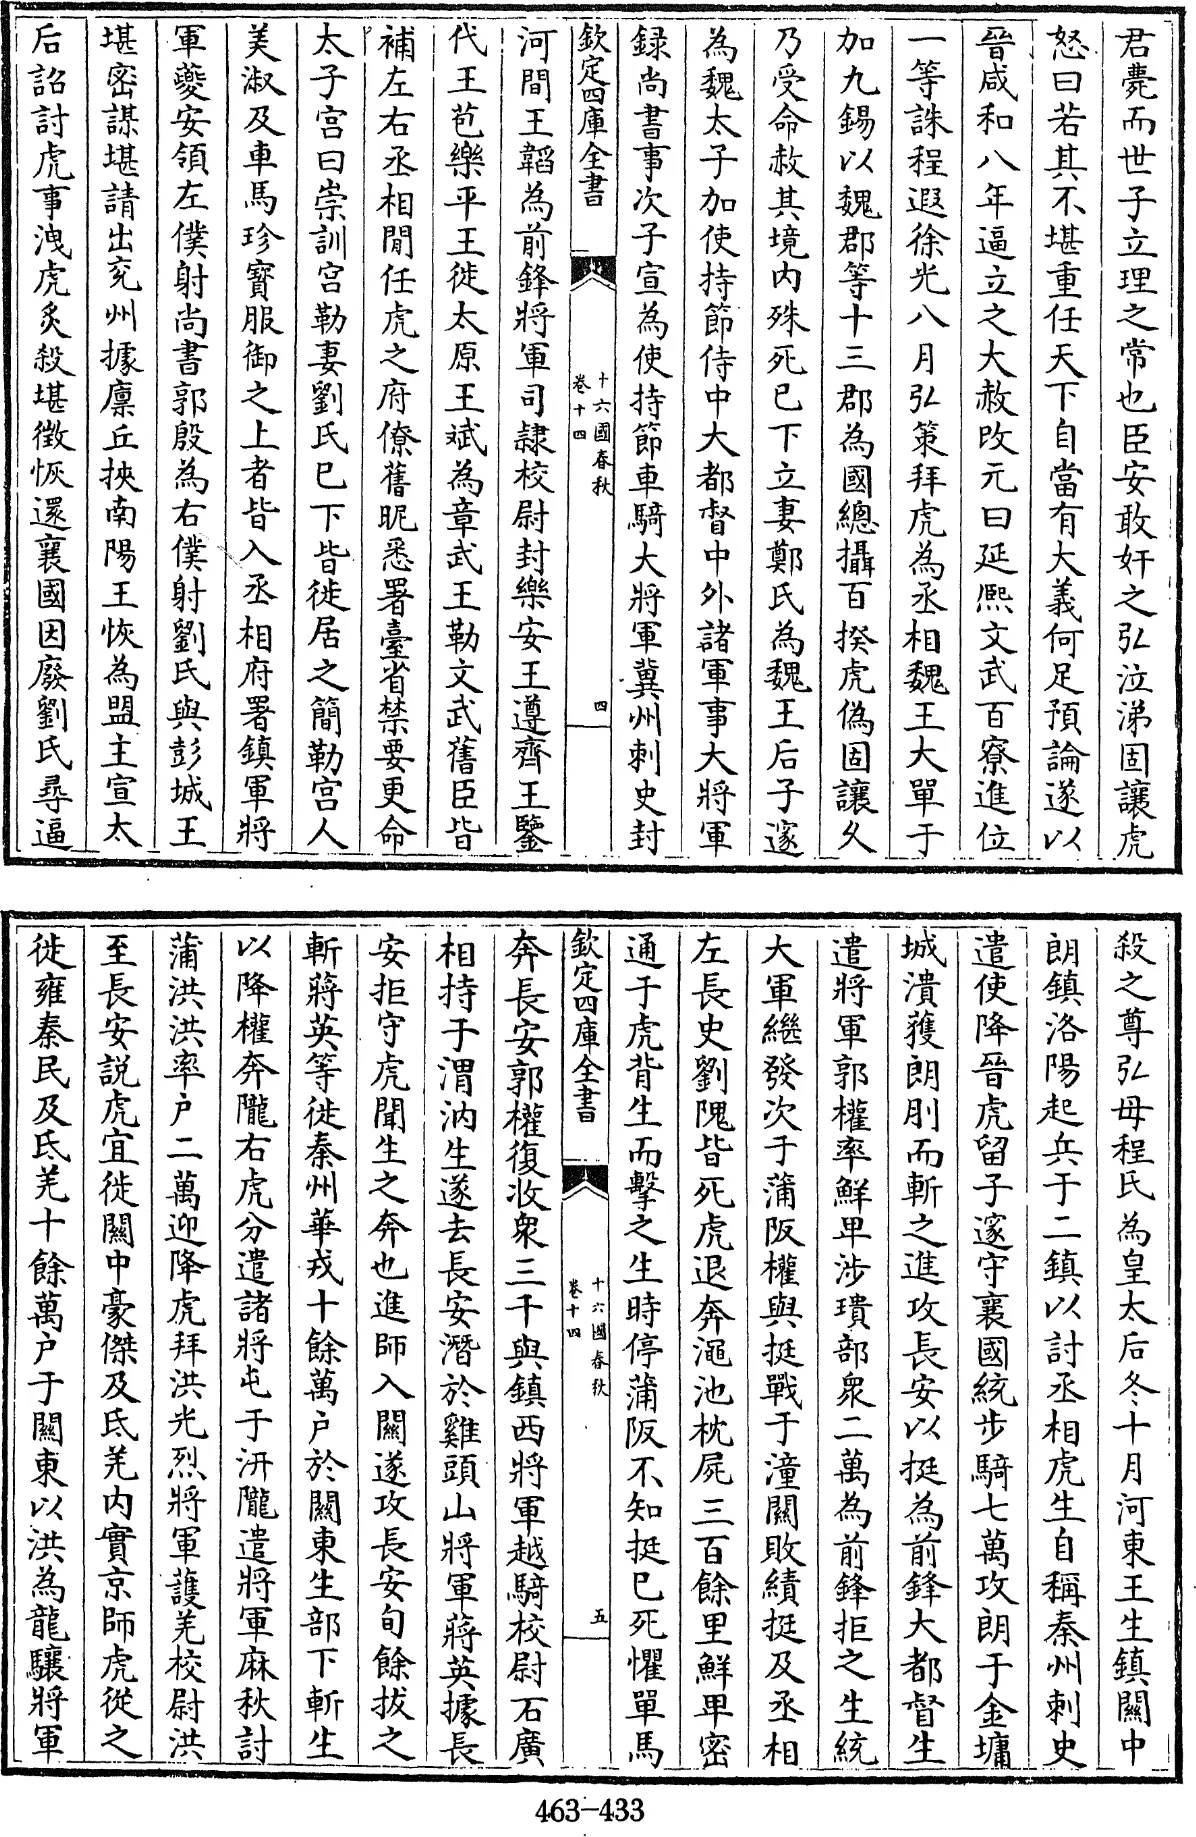 君薨而世子立理之常也臣安敢奸之弘泣涕固讓虎
怒曰若其不堪重任天下自當有大義何足預論遂以
晉咸和八年逼立之大赦改元曰延熙文武百寮進位
一等誅程遐徐光八月弘策拜虎為丞相魏王大單于
加九錫以魏郡等十三郡為國總攝百揆虎偽固讓久
乃受命赦其境内殊死已下立妻鄭氏為魏王后子邃
為魏太子加使持節侍中大都督中外諸軍事大將軍
録尚書事次子宣為使持節車騎大將軍冀州刺史封
欽定四庫全書
十六國春秋
卷十四
四
河間王韜為前鋒將軍司隷校尉封樂安王遵齊王鑒
代王苞樂平王徙太原王斌為章武王勒文武舊臣皆
補左右丞相閒任虎之府僚舊昵悉署臺省禁要更命
太子宮曰崇訓宮勒妻劉氏已下皆徙居之簡勒宮人
美淑及車馬珍寶服御之上者皆入丞相府署鎮軍將
軍夔安領左僕射尚書郭殷為右僕射劉氏與彭城王
堪密謀堪請出兖州據廪丘挾南陽王恢為盟主宣太
后詔討虎事洩虎炙殺堪徵恢還襄國因廢劉氏尋逼
殺之尊弘母程氏為皇太后冬十月河東王生鎮關中
朗鎮洛陽起兵于二鎮以討丞相虎生自稱秦州刺史
遣使降晉虎留子邃守襄國統步騎七萬攻朗于金墉
城潰獲朗刖而斬之進攻長安以挺為前鋒大都督生
遣將軍郭權率鮮卑涉璝部衆二萬為前鋒拒之生統
大軍繼發次于蒲阪權與挺戰于潼關敗績挺及丞相
左長史劉隗皆死虎退奔澠池枕屍三百餘里鮮卑密
通于虎背生而擊之生時停蒲阪不知挺已死懼單馬
欽定四庫全書
十六國春秋
卷十四
五
奔長安郭權復收衆三千與鎮西將軍越騎校尉石廣
相持于渭汭生遂去長安潛於雞頭山將軍蔣英據長
安拒守虎聞生之奔也進師入關遂攻長安旬餘拔之
斬蔣英等徙秦州華戎十餘萬户於關東生部下斬生
以降權奔隴右虎分遣諸將屯于汧隴遣將軍麻秋討
蒲洪洪率户二萬迎降虎拜洪光烈將軍護羌校尉洪
至長安説虎宜徙關中豪傑及氐羌内實京師虎從之
徙雍秦民及氐羌十餘萬户于關東以洪為龍驤將軍
463-433